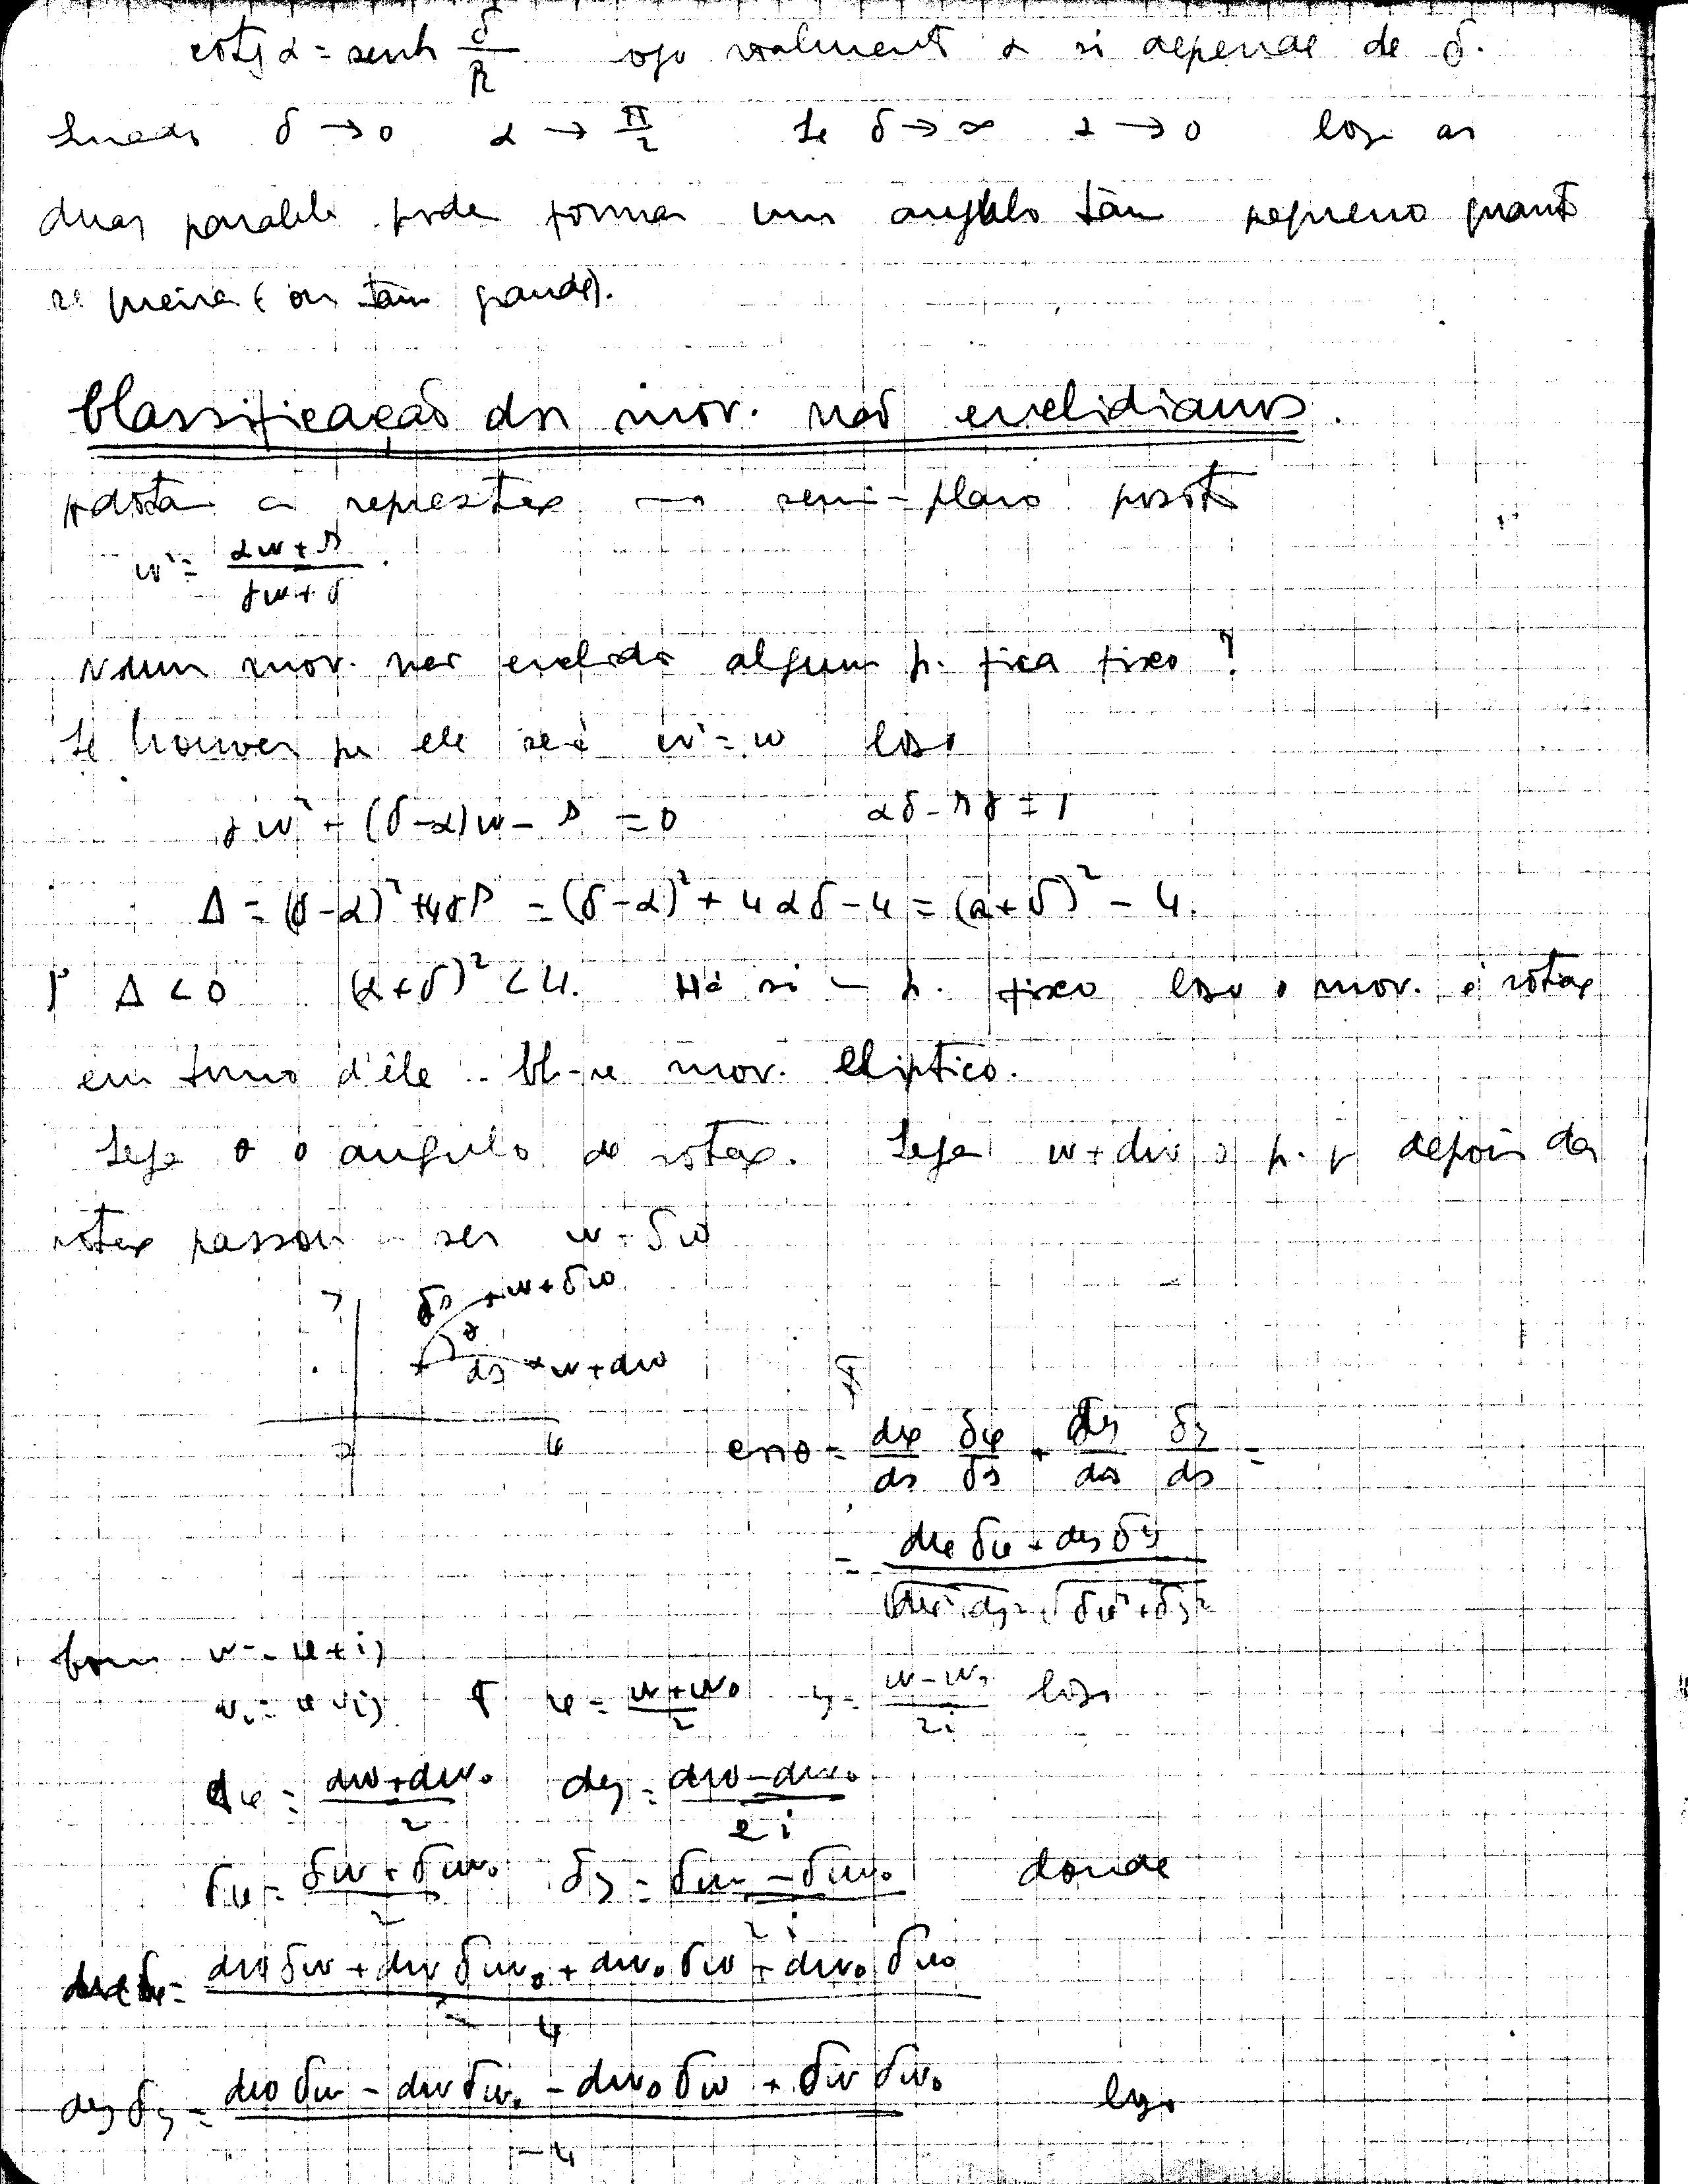 cotg α = senh δ/R logo realmente α só depende de δ.
Quando δ → 0 α → π/2 Se δ → ∞ α → 0 logo as
duas paralelas podem formar um angulo tão pequeno quanto
se queira (ou tão grande).
Classificação dos mov. não euclidianos.
Adota a represtação semi-plano posit
w' = (αw + β)/(γw + δ).
Num mov. não euclid algum p. fica fixo?
Se houver p. ele será w' = w logo
γw² + (δ-α)w - β = 0 αδ - βγ = 1
Δ = (δ-α)² + 4γβ = (δ-α)² + 4αδ - 4 = (α+δ)² - 4.
1º Δ < 0 (α+δ)² < 4. Há só 1 p. fixo logo o mov. é rotação
em torno d'êle. Ch-se mov. eliptico.
Seja θ o angulo de rotação. Seja w + dw o p. q depois da
rotação passou a ser w + δw
y δs w + δw
θ
ds w + dw
0 x
cos θ = dx/ds δx/δs + dy/ds δy/ds =
= (dx δx + dy δy)/(√(dx² + dy²) √(δx² + δy²))
Como w = x + iy
w₀ = x - iy x = (w + w₀)/2 y = (w - w₀)/2i logo
dx = (dw + dw₀)/2 dy = (dw - dw₀)/2i
δx = (δw + δw₀)/2 δy = (δw - δw₀)/2i donde
dx δx = (dw δw + dw δw₀ + dw₀ δw + dw₀ δw₀)/4
dy δy = (dw δw - dw δw₀ - dw₀ δw + δw δw₀)/-4 logo